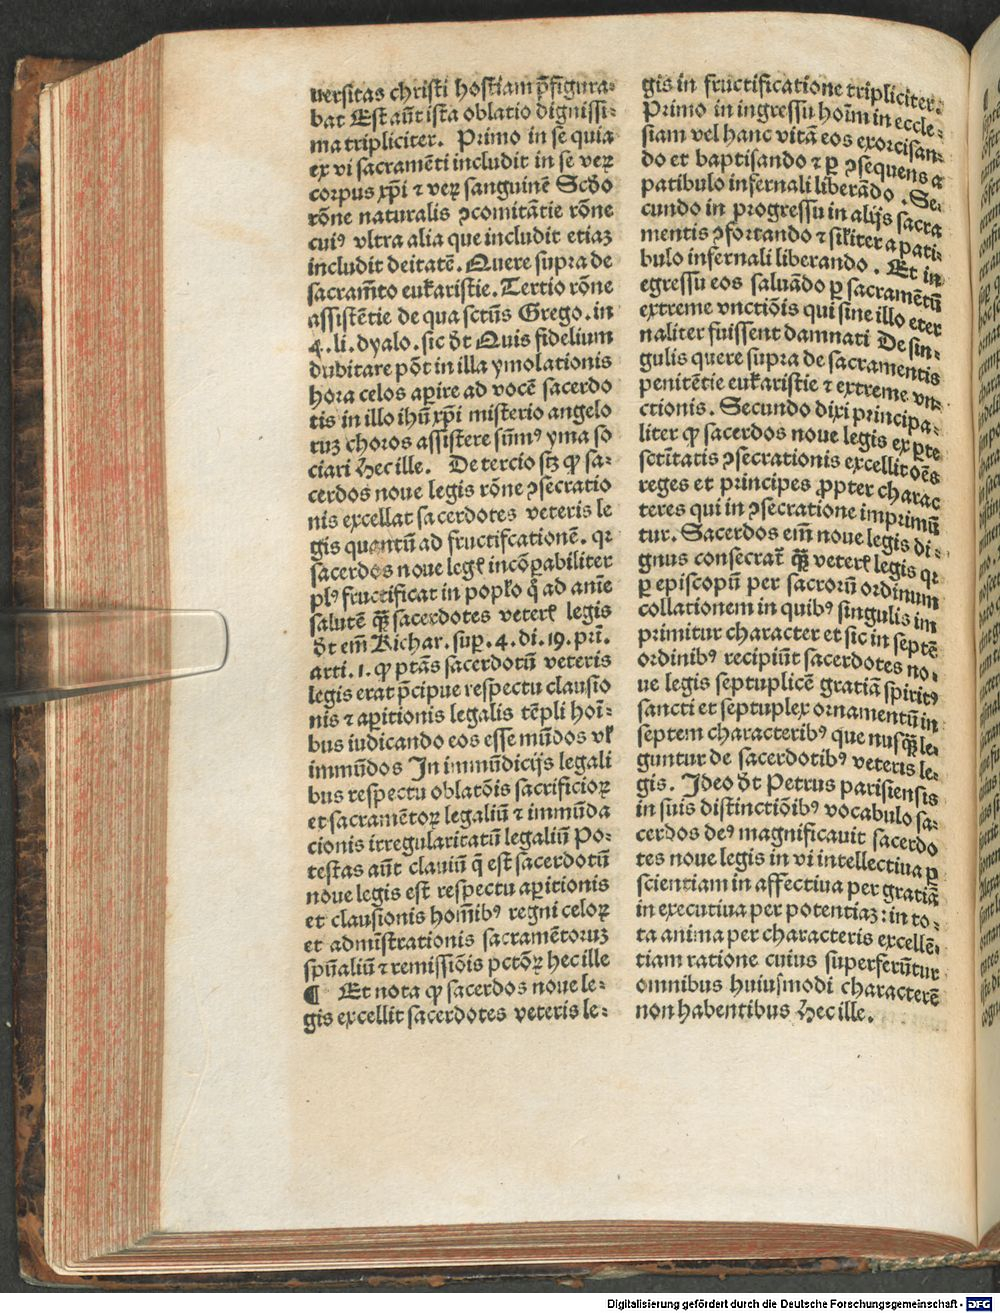 uersitas christi hostiam p̄figura⸗
bat Est aūt ista oblatio dignissi⸗
ma tripliciter. Primo in se quia
ex vi sacramēti includit in se veꝝ
corpus xp̄i ⁊ veꝝ sanguinē Scđo
rōne naturalis ꝯcomitātie rōne
cuiꝰ vltra alia que includit etiaꝫ
includit deitatē. Quere supra de
sacram̄to eukaristie. Tertio rōne
assistētie de qua sctūs Grego. in
4. li. dyalo. sic đt Quis fidelium
dubitare pōt in illa ymolationis
hora celos aꝑire ad vocē sacerdo
tis in illo ihū xp̄i misterio angelo
ruꝫ choros assistere sūmꝰ yma so
ciari Hec ille. De tercio sꝫ ꝙ sa⸗
cerdos noue legis rōne ꝯsecratio
nis excellat sacerdotes veteris le
gis quantū ad fructifcationē. qꝛ
sacerdos noue legꝭ incōꝑabiliter
plꝰ fructificat in popło q̄ ad anīe
salutē qꝫ̄ sacerdotes veterꝭ legis
đt em̄ Richar. suꝑ. 4. di. 19. prī.
arti. 1. ꝙ ptās sacerdotū veteris
legis erat p̄cipue respectu clausio
nis ⁊ aꝑitionis legalis tēpli hoī⸗
bus iudicando eos esse mūdos vł
immūdos In immūdicijs legali
bus respectu oblatōis sacrificioꝝ
et sacramētoꝝ legaliū ⁊ immūda
cionis irregularitatū legaliū Po⸗
testas aūt clauiū q̄ est sacerdotū
noue legis est respectu aꝑitionis
et clausionis homībꝰ regni celoꝝ
et admīstrationis sacramētoruꝫ
spūaliū ⁊ remissiōis pctōꝝ hec ille
¶ Et nota ꝙ sacerdos noue le⸗
gis excellit sacerdotes veteris le⸗
gis in fructificatione tripliciter.
Primo in ingressu hoīm in eccle⸗
siam vel hanc vitā eos exorcisan⸗
do et baptisando ⁊ ꝑ ꝯsequens a
patibulo infernali liberādo. Se⸗
cundo in progressu in alijs sacra
mentis ꝯfortando ⁊ siłiter a pati⸗
bulo infernali liberando. Et in
egressu eos saluādo ꝑ sacramētū
extreme vnctiōis qui sine illo eter
naliter fuissent damnati De sin⸗
gulis quere supra de sacramentis
penitētie eukaristie ⁊ extreme vn⸗
ctionis. Secundo dixi principa⸗
liter ꝙ sacerdos noue legis ex ꝑte
sctītatis ꝯsecrationis excellit oēs
reges et principes ꝓpter charac
teres qui in ꝯsecratione imprimū
tur. Sacerdos em̄ noue legis di⸗
gnus consecrat̄ qꝫ̄ veterꝭ legis qꝛ
ꝑ episcopū per sacrorū ordinum
collationem in quibꝰ singulis im
primitur character et sic in septē
ordinibꝰ recipiūt sacerdotes no⸗
ue legis septuplicē gratiā spiritꝰ
sancti et septuplex ornamentū in
septem characteribꝰ que nusqꝫ̄ le⸗
guntur de sacerdotibꝰ veteris le⸗
gis. Ideo đt Petrus parisiensis
in suis distinctiōibꝰ vocabulo sa⸗
cerdos deꝰ magnificauit sacerdo
tes noue legis in vi intellectiua ꝑ
scientiam in affectiua per gratiā
in executiua per potentiaꝫ: in to⸗
ta anima per characteris excellē⸗
tiam ratione cuius superferūtur
omnibus huiusmodi characterē
non habentibus Hec ille.
Digitalisierung gefördert durch die Deutsche Forschungsgemeinschaft - DFG